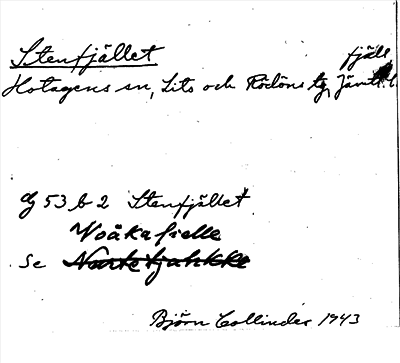 Stenfjället fjäll
Hotagens sn, Lits och Rödöns tg, Jämtl. l.
Cg 53 b 2 Stenfjället
Voåkafielle
Se
Björn Collinder 1943